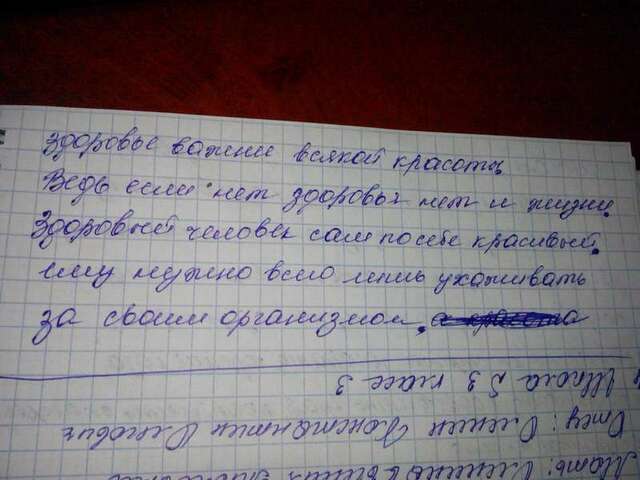 Здоровье важние всякой красоты
Ведь если нет здоровья нет и жизни.
Здоровый человек сам по себе красивый.
ему нужно всего лишь ухаживать
за своим организмом.
Школа 53 класс 3
Отец: Константин Олегович
Мать: